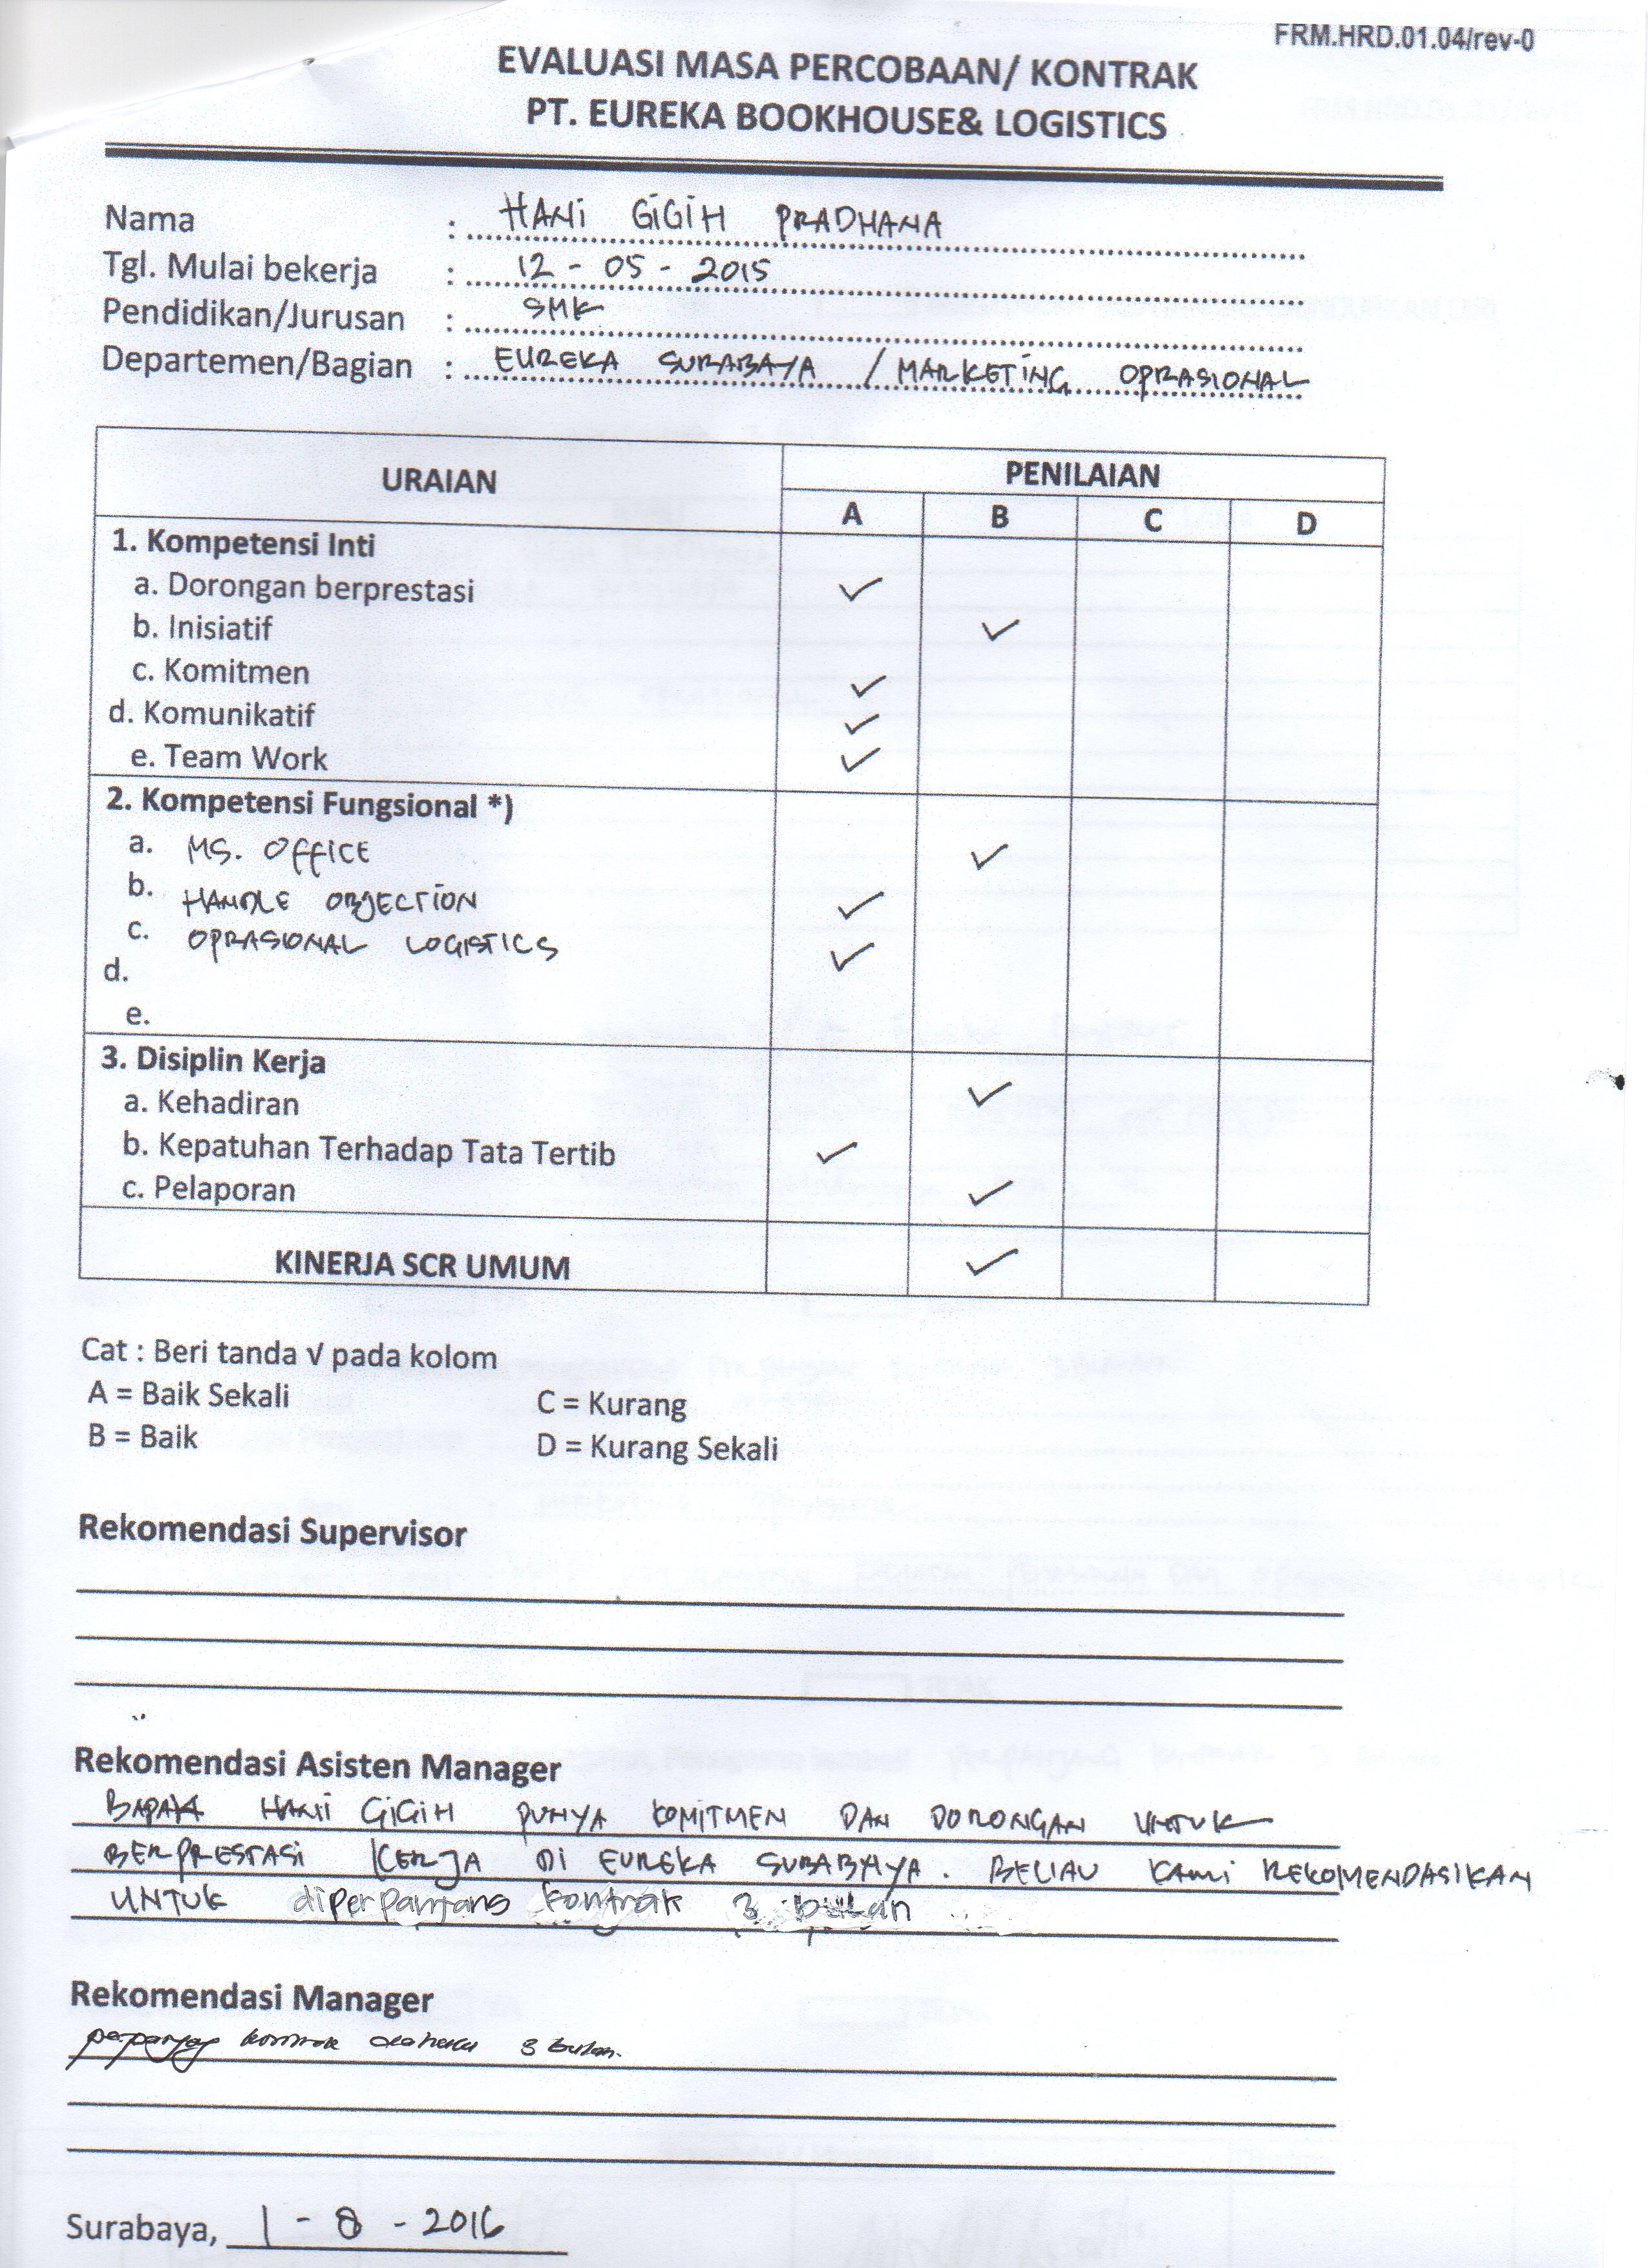 FRM.HRD.01.04/rev-0
EVALUASI MASA PERCOBAAN/ KONTRAK
PT. EUREKA BOOKHOUSE& LOGISTICS
Nama : HANI GIGIH PRADHANA
Tgl. Mulai bekerja : 12 - 05 - 2015
Pendidikan/Jurusan : SMK
Departemen/Bagian : EUREKA SURABAYA / MARKETING OPRASIONAL
URAIAN PENILAIAN
A B C D
1. Kompetensi Inti
a. Dorongan berprestasi ✓
b. Inisiatif ✓
c. Komitmen ✓
d. Komunikatif ✓
e. Team Work ✓
2. Kompetensi Fungsional *)
a. MS. OFFICE ✓
b. HANDLE OBJECTION ✓
c. OPRASIONAL LOGISTICS ✓
d.
e.
3. Disiplin Kerja
a. Kehadiran ✓
b. Kepatuhan Terhadap Tata Tertib ✓
c. Pelaporan ✓
KINERJA SCR UMUM ✓
Cat : Beri tanda √ pada kolom
A = Baik Sekali C = Kurang
B = Baik D = Kurang Sekali
Rekomendasi Supervisor
Rekomendasi Asisten Manager
BAPAK HANI GIGIH PUNYA KOMITMEN DAN DORONGAN UNTUK
BERPRESTASI KERJA DI EUREKA SURABAYA. BELIAU KAMI REKOMENDASIKAN
UNTUK diperpanjang kontrak 3 bulan
Rekomendasi Manager
kontrak 3 bulan.
Surabaya, 1 - 8 - 2016